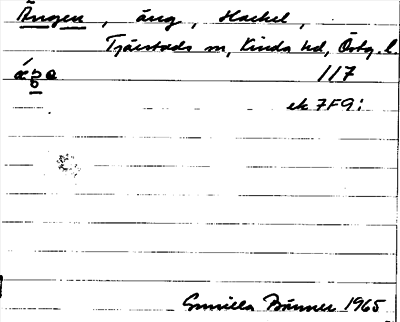 Ängen, äng, Hackel,
Tjärstads sn, Kinda hd, Östg. l.
117
ek 7F9:
Gunilla 1965